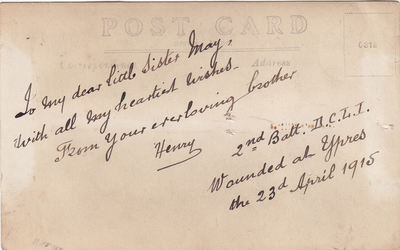 POST CARD
Correspondence Address
To my dear little Sister May,
With all my heartiest wishes
From your everloving brother
Henry
2nd Batt. D.C.L.I.
Wounded at Ypres
the 23d April 1915